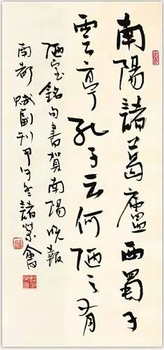 南陽諸葛廬西蜀子
雲亭孔子云何陋之有
陋室銘句書賀南陽晚報
南都賦副刊甲午冬諸榮會